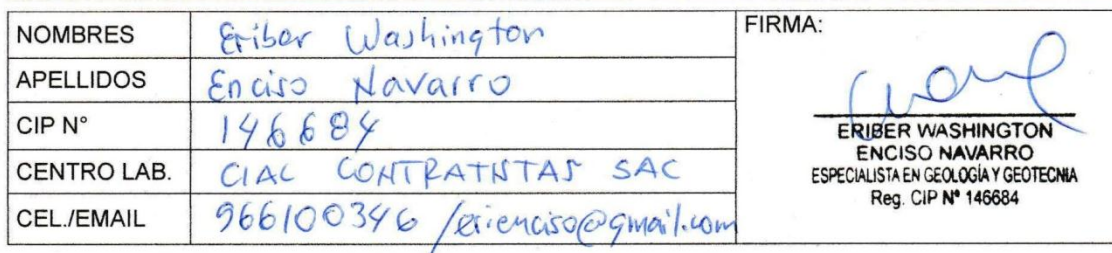 NOMBRES Eriber Washington
APELLIDOS Enciso Navarro
CIP N° 146684
CENTRO LAB. CIAC CONTRATISTAS SAC
CEL./EMAIL 966100346 /erienciso@gmail.com
FIRMA:
ERIBER WASHINGTON
ENCISO NAVARRO
ESPECIALISTA EN GEOLOGÍA Y GEOTECNIA
Reg. CIP Nº 146684